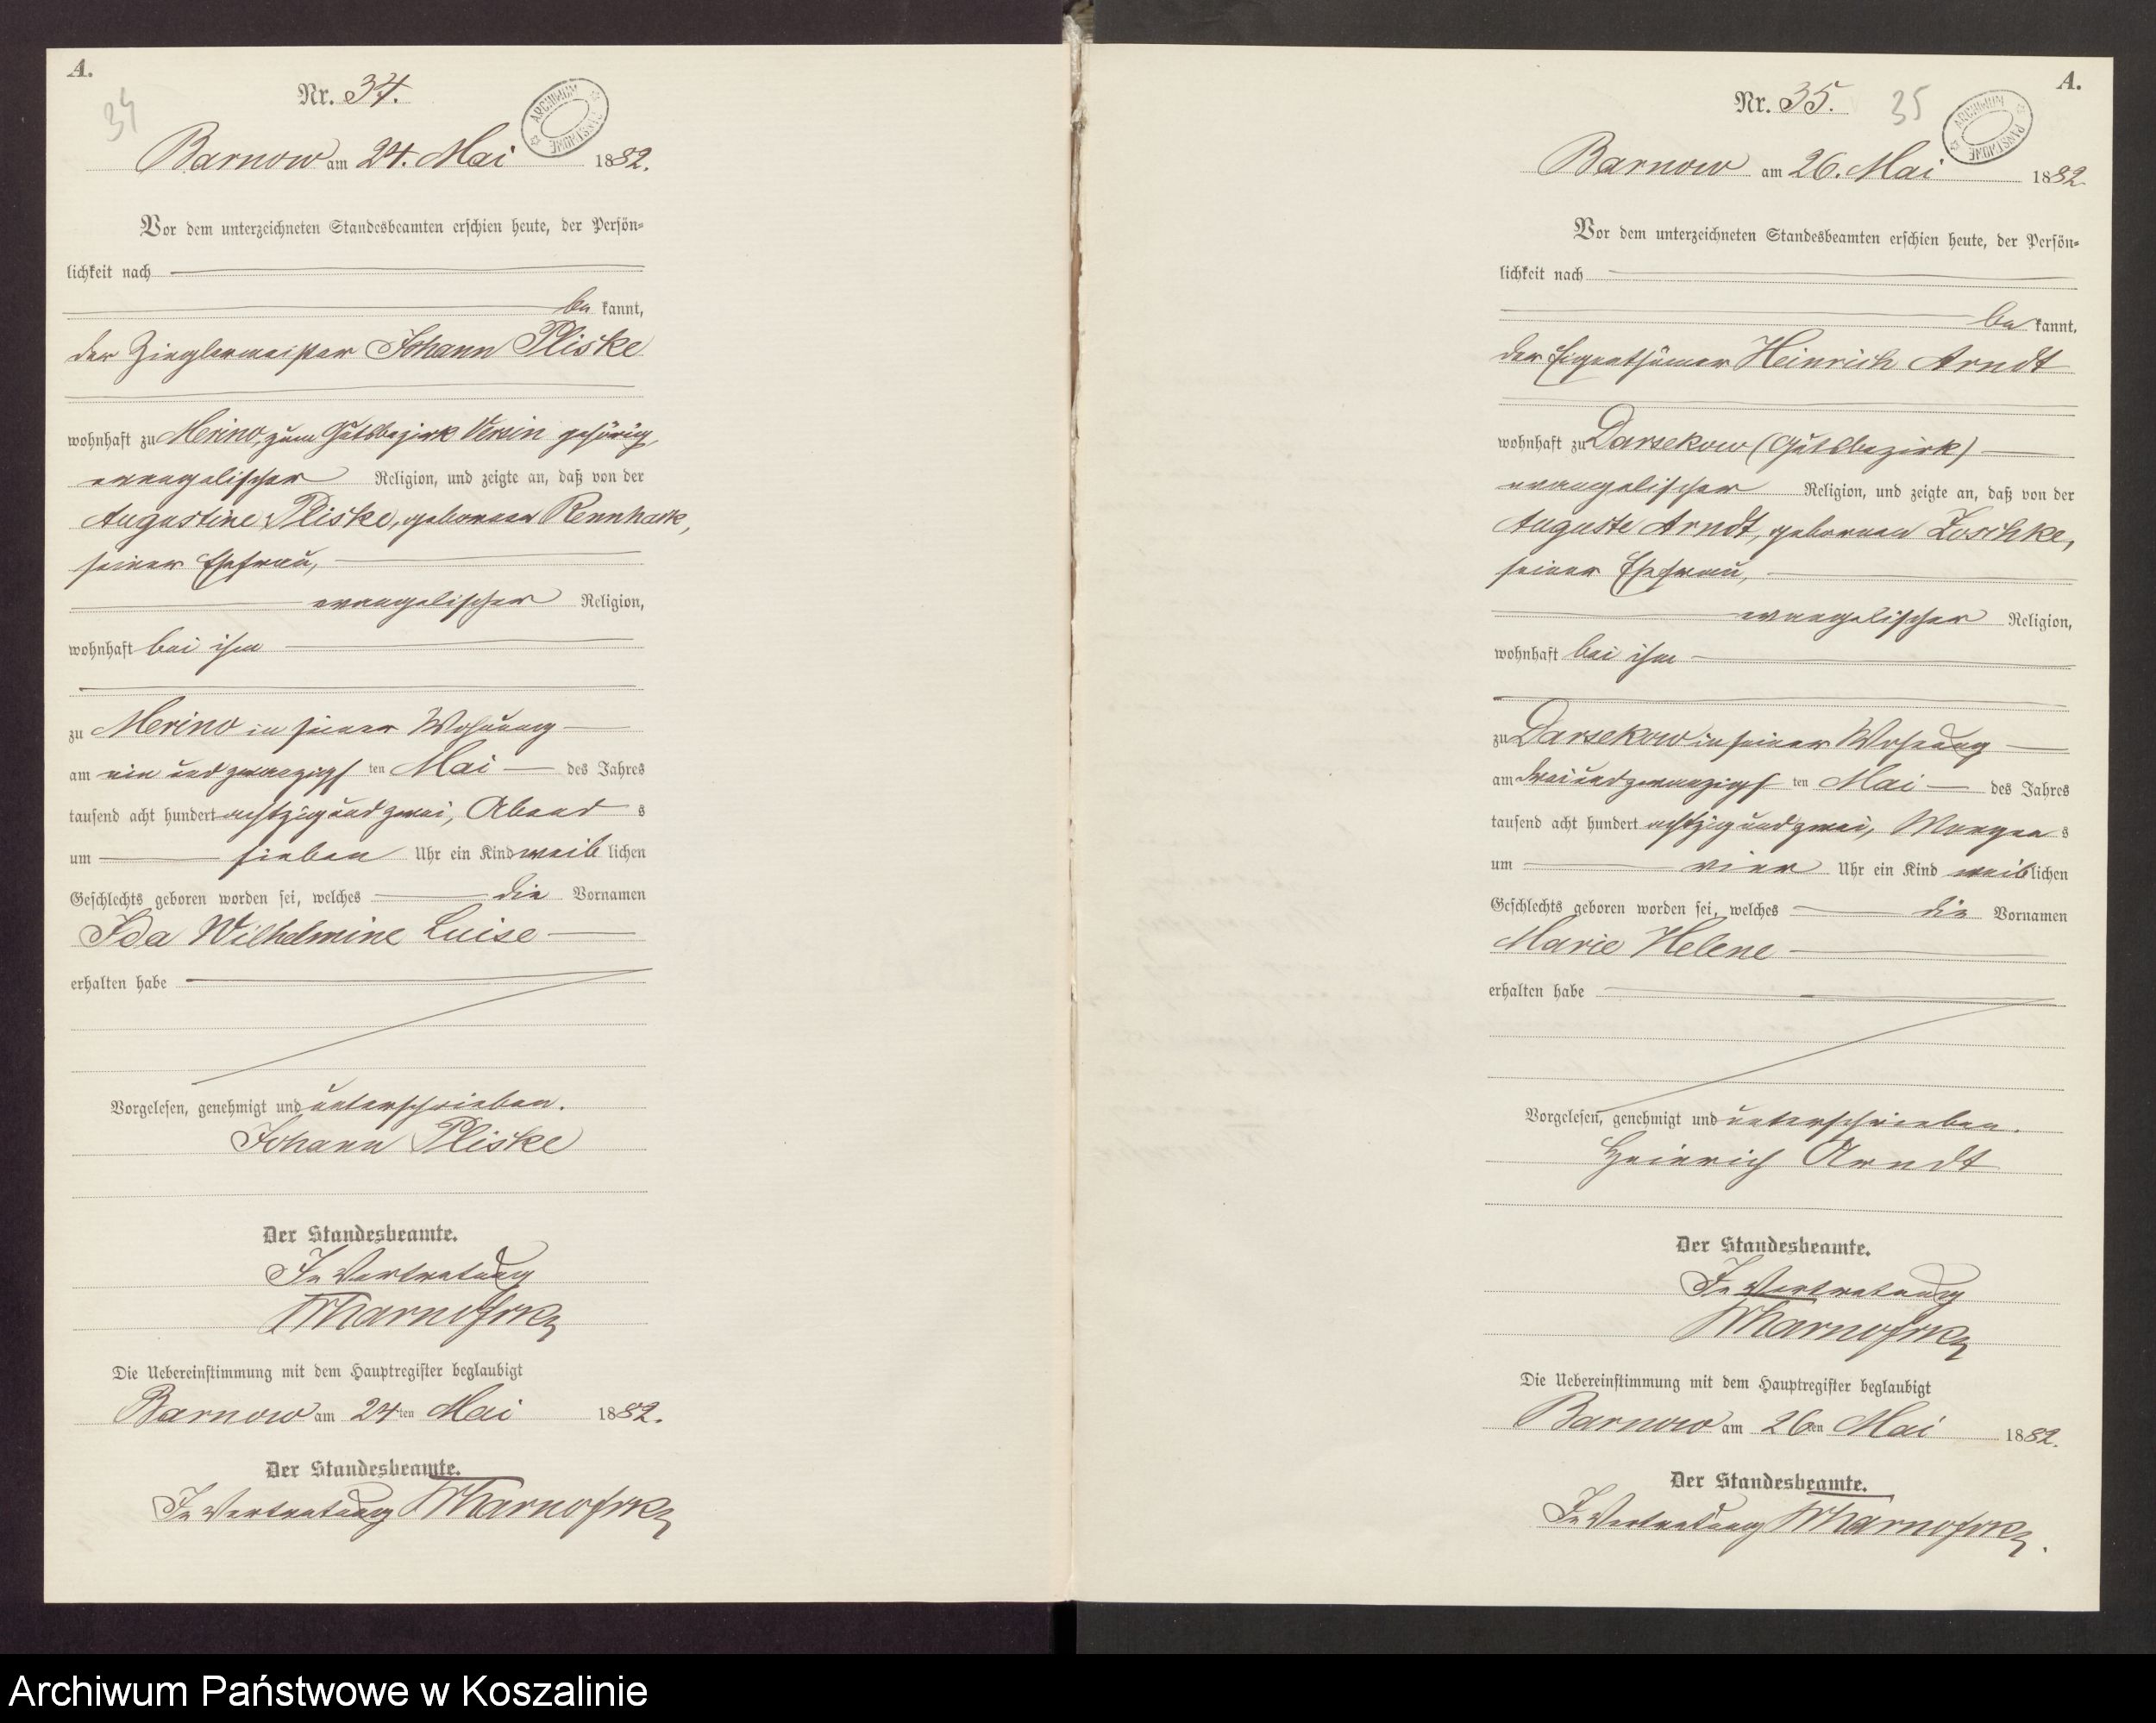 A.
34
Nr. 34.
ARCHIWUM PAŃSTWOWE
Barnow am 24. Mai 1882.
Vor dem unterzeichneten Standesbeamten erschien heute, der Persön-
lichkeit nach
be kannt,
der Zieglermeister Johann Pliske
wohnhaft zu Merino, zum Gutsbezirk Versin gehörig,
evangelischer Religion, und zeigte an, daß von der
Augustine Pliske, geborenen Rennhack,
seiner Ehefrau,
evangelischer Religion,
wohnhaft bei ihm
zu Merino in seiner Wohnung
am ein und zwanzigs ten Mai des Jahres
tausend acht hundert achtzig und zwei, Abend s
um sieben Uhr ein Kind weib lichen
Geschlechts geboren worden sei, welches die Vornamen
Ida Wilhelmine Luise
erhalten habe
Vorgelesen, genehmigt und unterschrieben.
Johann Pliske
Der Standesbeamte.
In Vertretung
Die Uebereinstimmung mit dem Hauptregister beglaubigt
Barnow am 24ten Mai 1882.
Der Standesbeamte.
In Vertretung
A.
Nr. 35. 35
ARCHIWUM PAŃSTWOWE
Barnow am 26. Mai 1882
Vor dem unterzeichneten Standesbeamten erschien heute, der Persön-
lichkeit nach
be kannt,
der Eigenthümer Heinrich Arndt
wohnhaft zu Darsekow (Gutsbezirk)
evangelischer Religion, und zeigte an, daß von der
Auguste Arndt, geborenen Loschke,
seiner Ehefrau,
evangelischer Religion,
wohnhaft bei ihm
zu Darsekow in seiner Wohnung
am drei und zwanzigs ten Mai des Jahres
tausend acht hundert achtzig und zwei, Morgen s
um vier Uhr ein Kind weiblichen
Geschlechts geboren worden sei, welches die Vornamen
Marie Helene
erhalten habe
Vorgelesen, genehmigt und unterschrieben.
Heinrich Arndt
Der Standesbeamte.
In Vertretung
Die Uebereinstimmung mit dem Hauptregister beglaubigt
Barnow am 26ten Mai 1882.
Der Standesbeamte.
In Vertretung
Archiwum Państwowe w Koszalinie